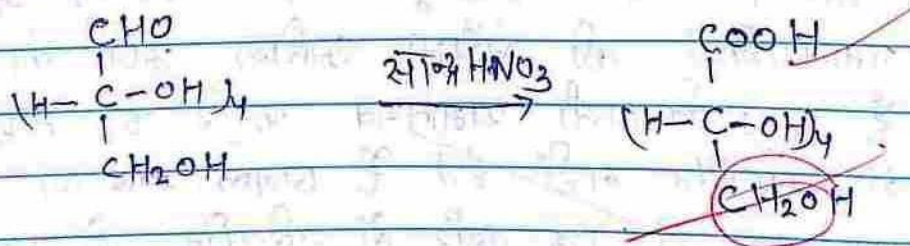 CHO
(H-C-OH)4
CH2OH
सान्द्र HNO3
COOH
(H-C-OH)4
CH2OH